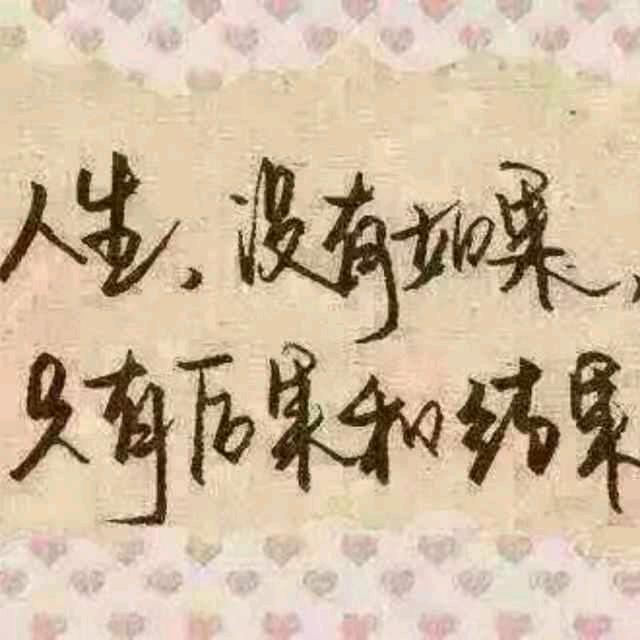 人生、没有如果、
只有后果和结果